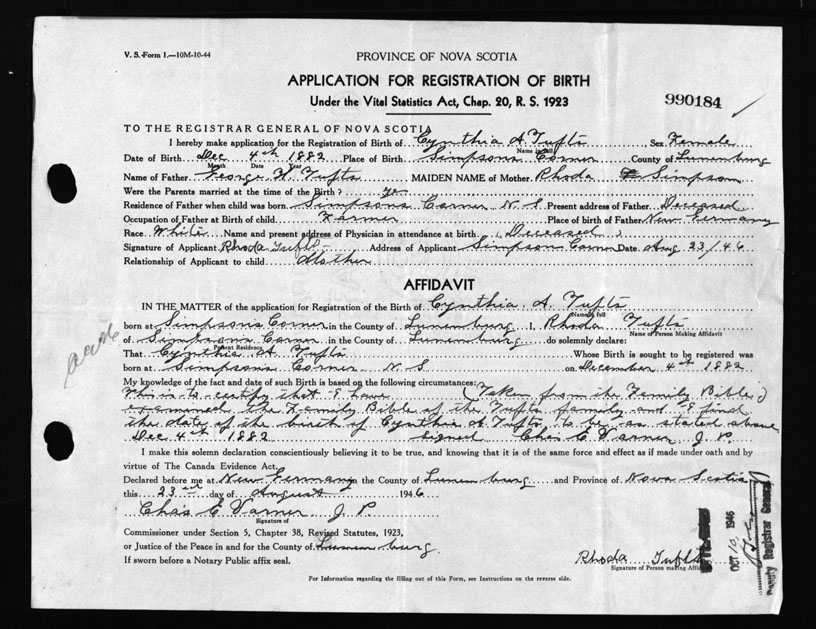 V. S. Form 1.—10M-10-44
PROVINCE OF NOVA SCOTIA
APPLICATION FOR REGISTRATION OF BIRTH
Under the Vital Statistics Act, Chap. 20, R. S. 1923
990184
TO THE REGISTRAR GENERAL OF NOVA SCOTIA
I hereby make application for the Registration of Birth of Cynthia A. Tufts Sex Female
Name in full
Date of Birth Dec 4th 1882 Place of Birth Simpsons Corner County of Lunenburg
Month Date Year
Name of Father George W. Tufts MAIDEN NAME of Mother Rhoda Simpson
Were the Parents married at the time of the Birth? yes
Residence of Father when child was born Simpsons Corner N. S. Present address of Father Deceased
Occupation of Father at Birth of child Farmer Place of birth of Father New Germany
Race White Name and present address of Physician in attendance at birth (Deceased)
Signature of Applicant Rhoda Tufts Address of Applicant Simpson Corner Date Aug 23/46
Relationship of Applicant to child Mother
AFFIDAVIT
IN THE MATTER of the application for Registration of the Birth of Cynthia A. Tufts
Name in full
born at Simpsons Corner in the County of Lunenburg I, Rhoda Tufts
Name of Person Making Affidavit
of Simpsons Corner in the County of Lunenburg do solemnly declare:
Present Residence
That Cynthia A. Tufts Whose Birth is sought to be registered was
born at Simpsons Corner N. S. on December 4th 1882
My knowledge of the fact and date of such Birth is based on the following circumstances:
This is to certify that I have (Taken from the Family Bible)
examined the Family Bible of the Tufts family and I find
the date of the birth of Cynthia A Tufts to be as stated above
Dec 4th 1882 Signed Chas E Varner J. P.
I make this solemn declaration conscientiously believing it to be true, and knowing that it is of the same force and effect as if made under oath and by
virtue of The Canada Evidence Act.
Declared before me at New Germany in the County of Lunenburg and Province of Nova Scotia
this 23rd day of August 1946
Chas E Varner J. P.
Signature of
Commissioner under Section 5, Chapter 38, Revised Statutes, 1923,
or Justice of the Peace in and for the County of Lunenburg
If sworn before a Notary Public affix seal.
Rhoda Tufts
Signature of Person making Affidavit
OCT 10 1946
Deputy Registrar General
For Information regarding the filling out of this Form, see Instructions on the reverse side.